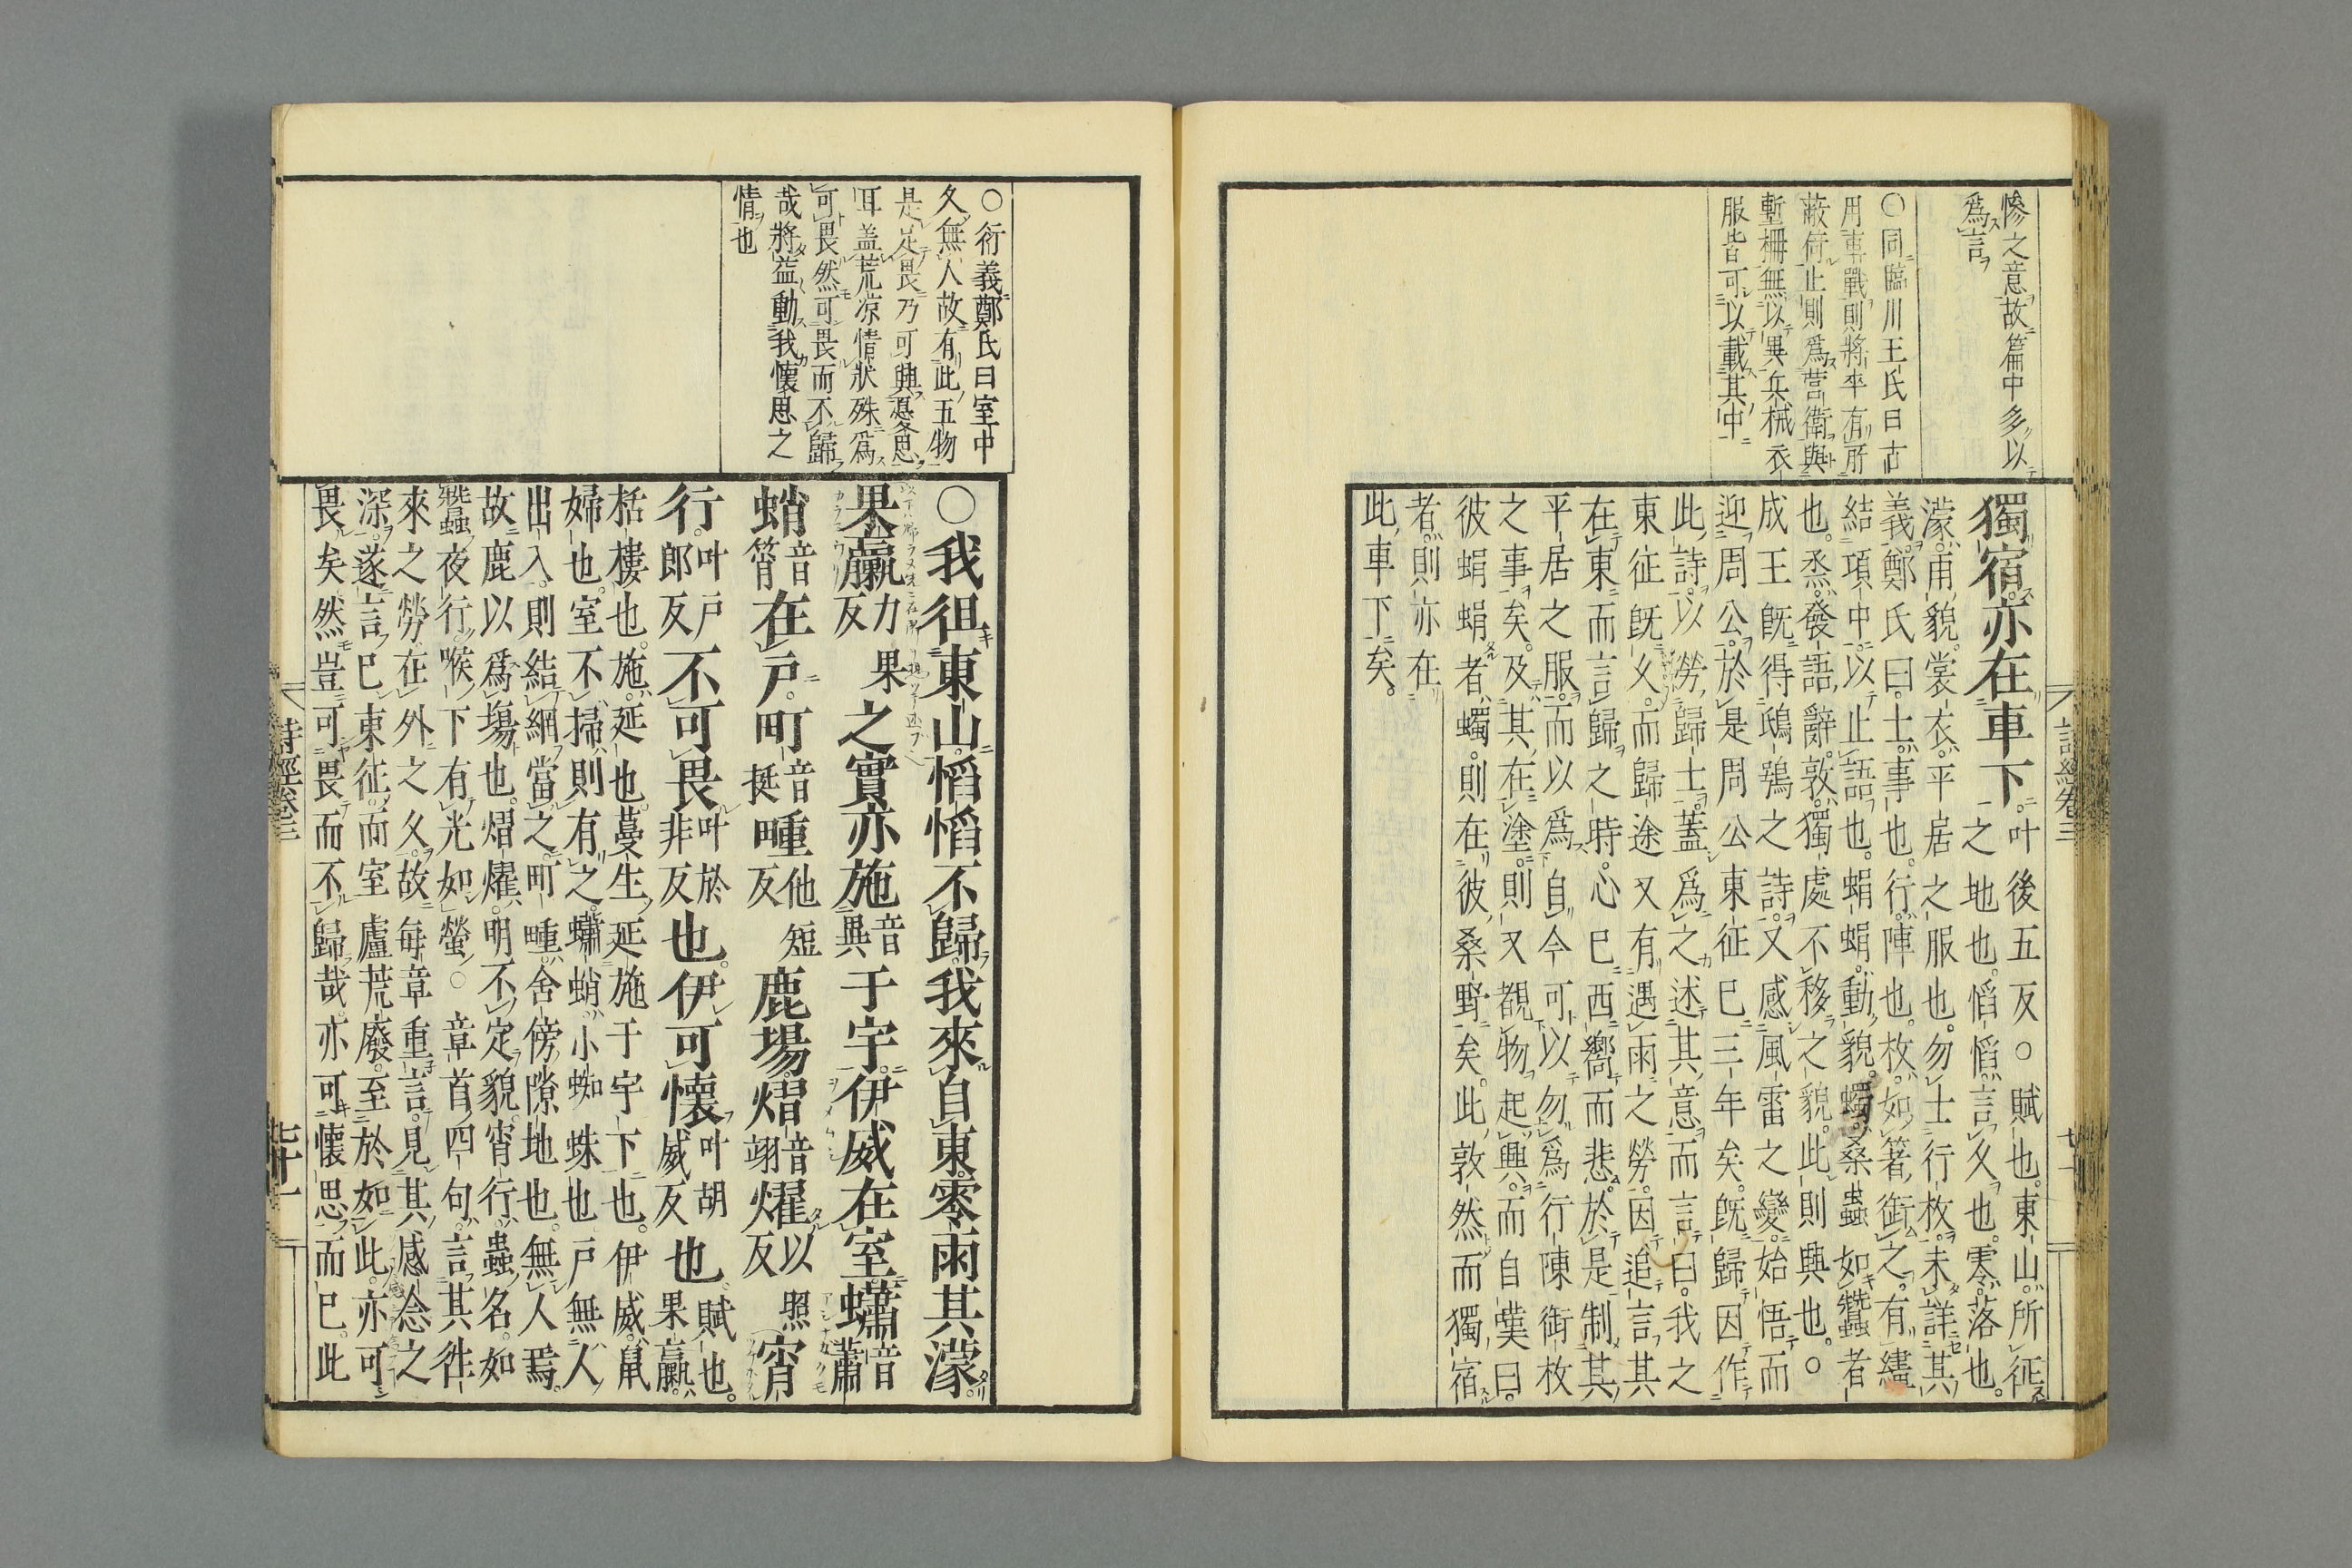 慘之意故篇中多以
爲言
○同臨川王氏曰古
用車戰則將卒有所
蔽倚止則爲營衛與
塹柵無以異兵械衣
服皆可以載其中
獨宿亦在車下叶後五反○賦也東山所征
之地也慆慆言久也零落也
濛雨貌裳衣平居之服也勿士行枚未詳其
義鄭氏曰士事也行陣也枚如箸銜之有繣
結項中以止語也蜎蜎動貌蠋桑蟲如蠶者
也烝發語辭敦獨處不移之貌此則興也○
成王既得鴟鴞之詩又感風雷之變始悟而
迎周公於是周公東征已三年矣既歸因作
此詩以勞歸士蓋爲之述其意而言曰我之
東征既久而歸途又有遇雨之勞因追言其
在東而言歸之時心已西嚮而悲於是制其
平居之服而以爲自今可以勿爲行陳銜枚
之事矣及其在塗則又覩物起興而自嘆曰
彼蜎蜎者蠋則在彼桑野矣此敦然而獨宿
者則亦在
此車下矣
詩經卷三
七十一
○衍義鄭氏曰室中
久無人故有此五物
是足畏乃可興憂思
耳盖荒凉情狀殊爲
可畏然可畏而不歸
哉將益動我懷思之
情也
○我徂東山慆慆不歸我來自東零雨其濛
果臝力果反之實亦施音異于宇伊威在室蠨音蕭
蛸音筲在戶町音挺畽他短反鹿場熠音翊燿以照反宵
行叶戶郎反不可畏叶於非反也伊可懷叶胡威反也賦也果臝
栝樓也施延也蔓生延施于宇下也伊威鼠
婦也室不掃則有之蠨蛸小蜘蛛也戶無人
出入則結網當之町畽舍傍隙地也無人焉
故鹿以爲場也熠燿明不定貌宵行蟲名如
蠶夜行喉下有光如螢○章首四句言其往
來之勞在外之久故每章重言見其感念之
深遂言已東征而室廬荒廢至於如此亦可
畏矣然豈可畏而不歸哉亦可懷思而已此
詩經卷三